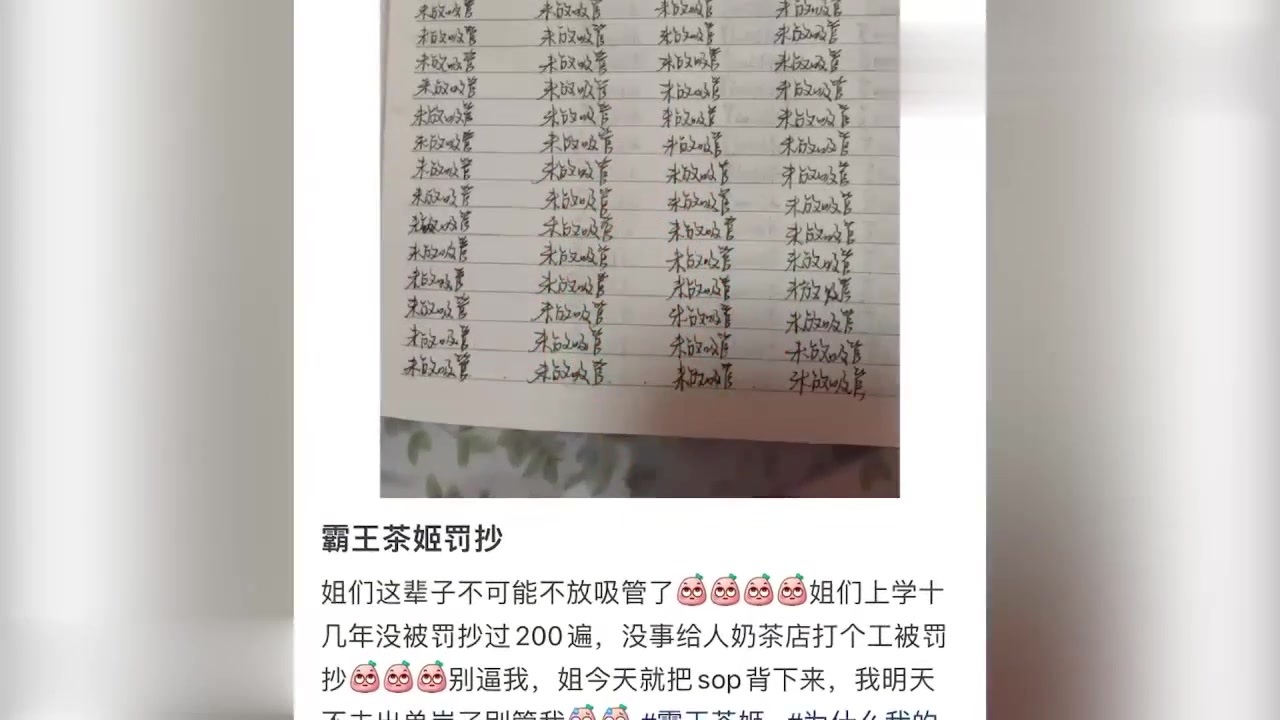 未放吸管 未放吸管 未放吸管 未放吸管
未放吸管 未放吸管 未放吸管 未放吸管
未放吸管 未放吸管 未放吸管 未放吸管
未放吸管 未放吸管 未放吸管 未放吸管
未放吸管 未放吸管 未放吸管 未放吸管
未放吸管 未放吸管 未放吸管 未放吸管
未放吸管 未放吸管 未放吸管 未放吸管
未放吸管 未放吸管 未放吸管 未放吸管
未放吸管 未放吸管 未放吸管 未放吸管
未放吸管 未放吸管 未放吸管 未放吸管
未放吸管 未放吸管 未放吸管 未放吸管
未放吸管 未放吸管 未放吸管 未放吸管
未放吸管 未放吸管 未放吸管 未放吸管
未放吸管 未放吸管 未放吸管 未放吸管
霸王茶姬罚抄
姐们这辈子不可能不放吸管了姐们上学十
几年没被罚抄过200遍，没事给人奶茶店打个工被罚
抄别逼我，姐今天就把sop背下来，我明天
#霸王茶姬 #为什么我的